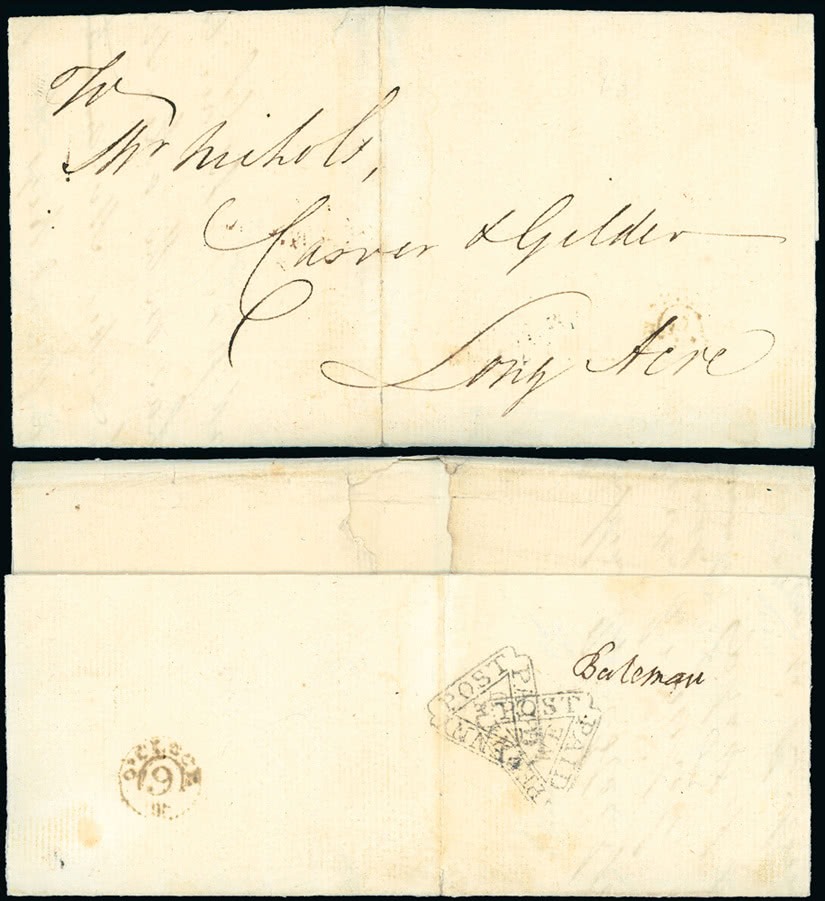 To
Mr Nichols,
Carver & Gilder
Long Acre
Bateman
POST PAID
PENNY
POST PAID
O'CLOCK
9